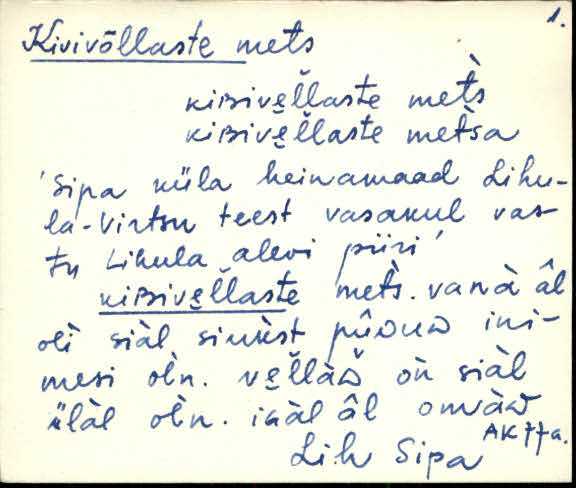 1.
Kivivõllaste mets
kiʙive̮l̆laste met̀s
kiʙive̮l̆laste met̀sa
'Sipa küla heinamaad Lihu-
la-Virtsu teest vasakul vas-
tu Lihula alevi piiri'
kiʙive̮l̆laste met̀s. vanà âl
olì siàl sinùst pûᴅuᴅ ini-
mesi olǹ. ve̮l̆làᴅ oǹ siàl
ülàl olǹ. ikàl âl omvàᴅ
AKtta.
Lih Sipa